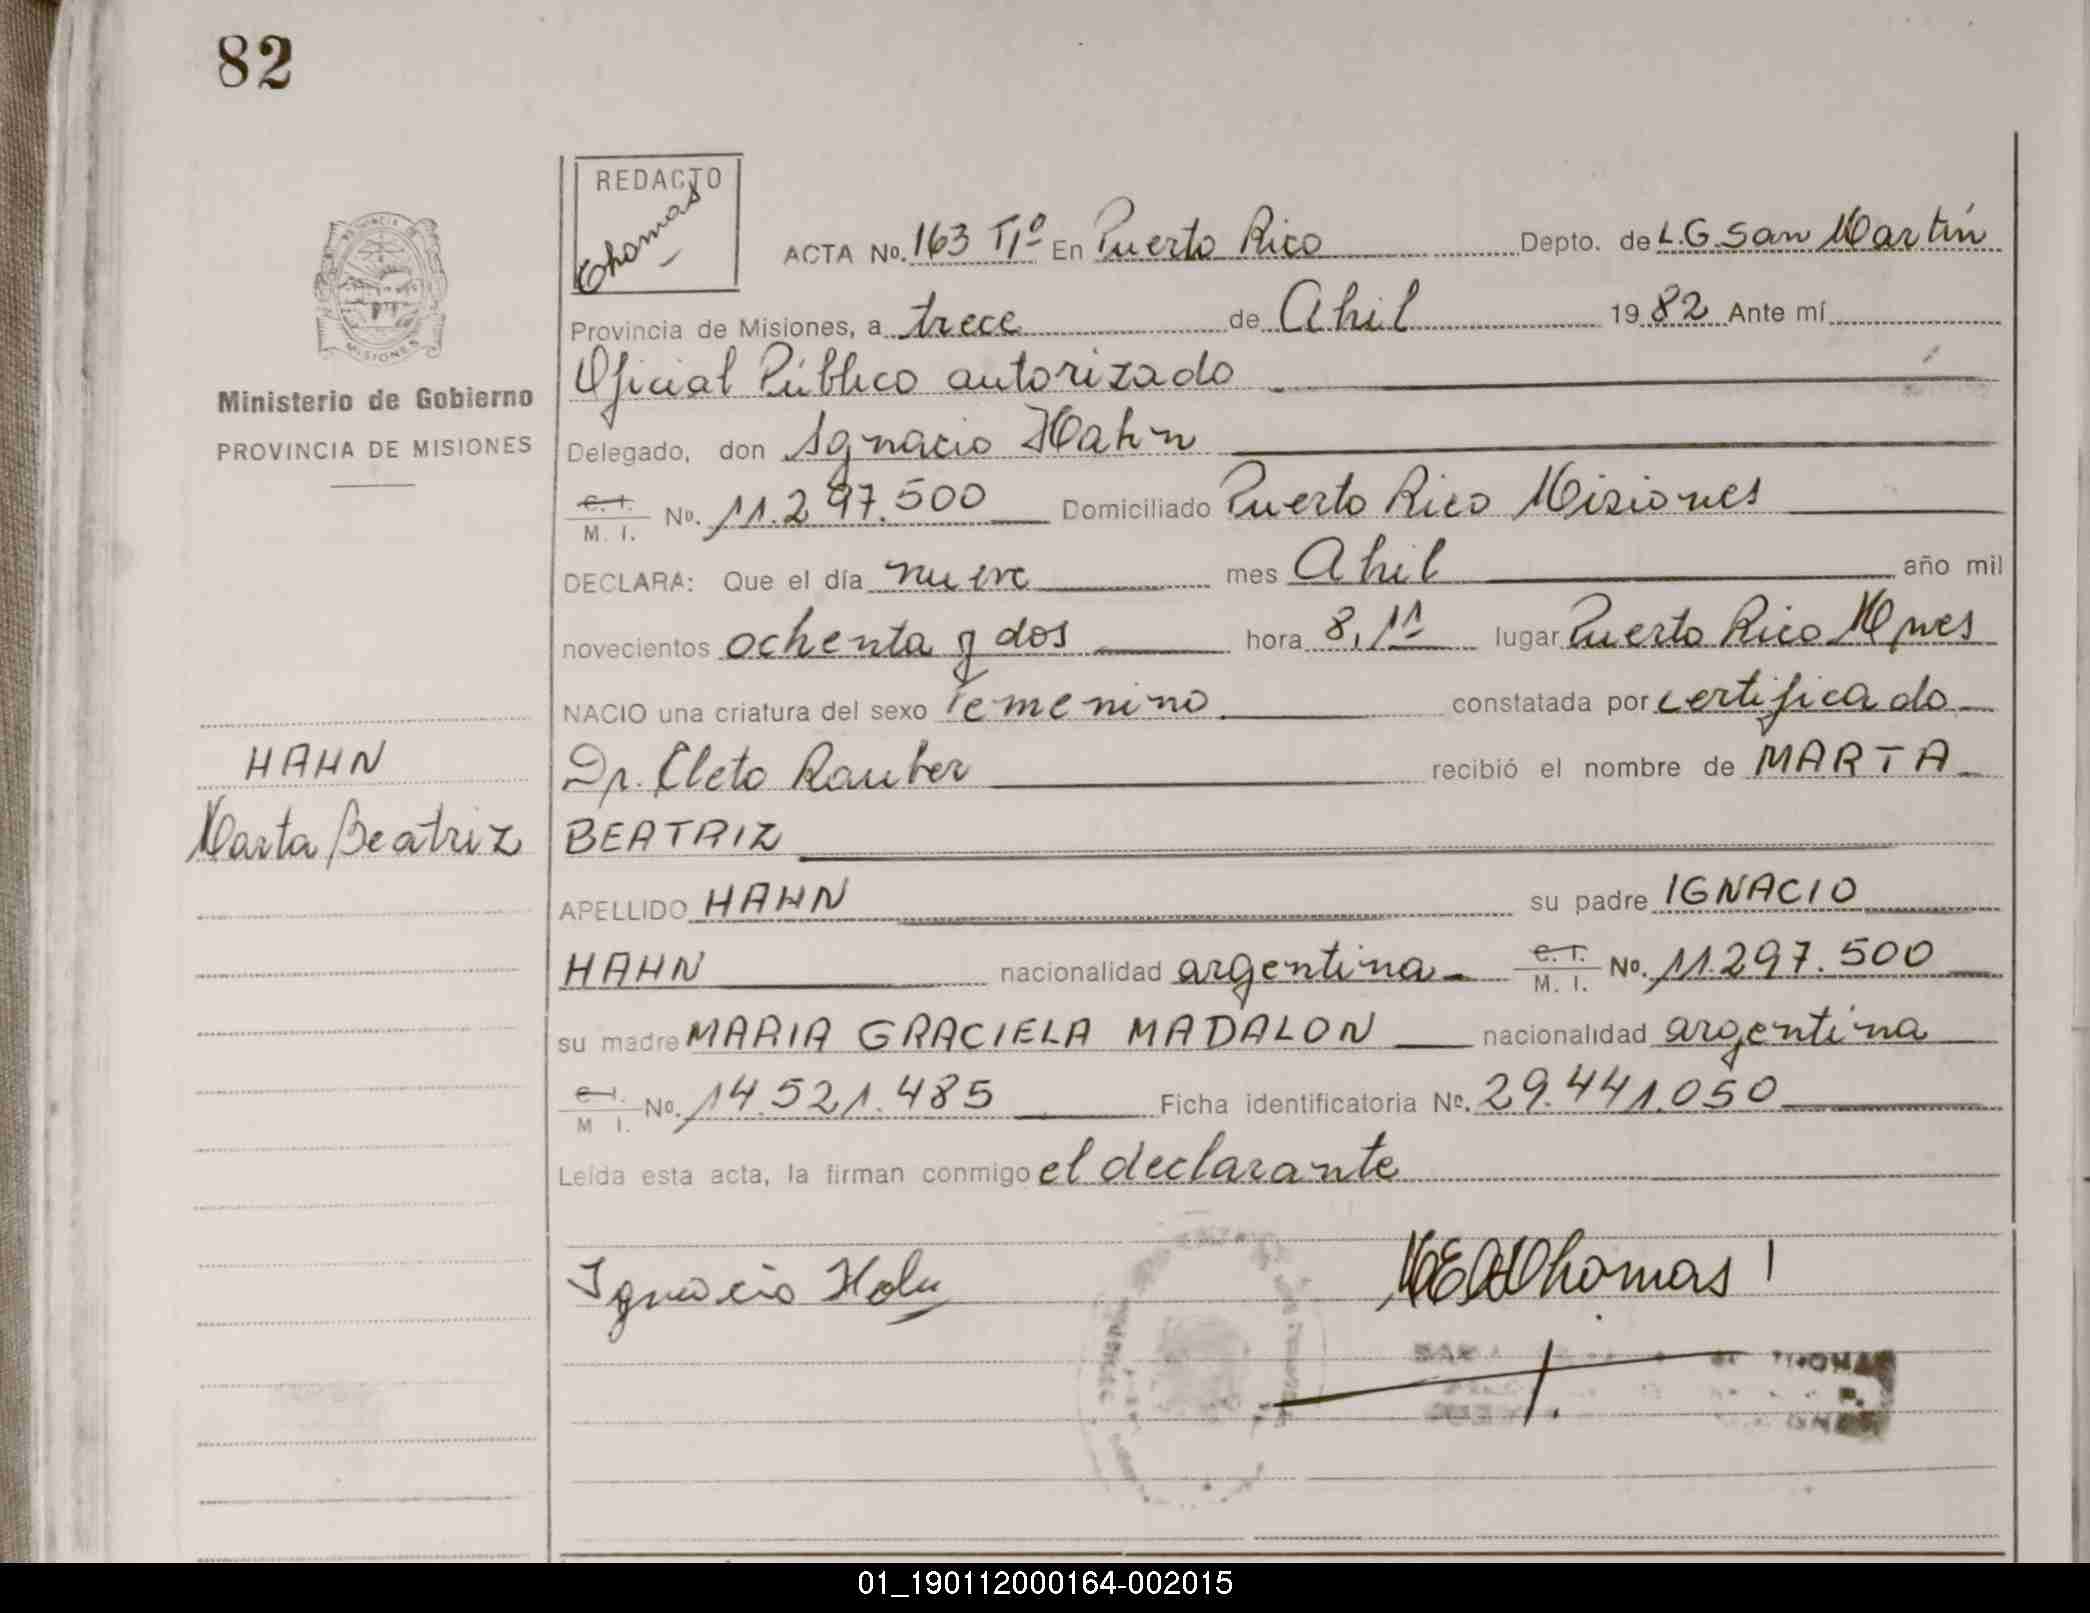 82
REDACTO
Thomas
ACTA No. 163 T1º En Puerto Rico Depto. de L.G. San Martín
Provincia de Misiones, a trece de Abril 1982 Ante mí
Oficial Público autorizado
Ministerio de Gobierno
PROVINCIA DE MISIONES
Delegado, don Ignacio Hahn
C. I. M. I. No. 11.297.500 Domiciliado Puerto Rico Misiones
DECLARA: Que el día nueve mes Abril año mil
novecientos ochenta y dos hora 8,11 lugar Puerto Rico Mnes
NACIO una criatura del sexo femenino constatada por certificado
HAHN
Marta Beatriz
Dr. Cleto Rauber recibió el nombre de MARTA
BEATRIZ
APELLIDO HAHN su padre IGNACIO
HAHN nacionalidad argentina C. I. M. I. No. 11.297.500
su madre MARIA GRACIELA MADALON nacionalidad argentina
C. I. M. I. No. 14.521.485 Ficha identificatoria Nº. 29.441.050
Leída esta acta, la firman conmigo el declarante
Ignacio Hahn
Thomas
THOMAS
01_190112000164-002015